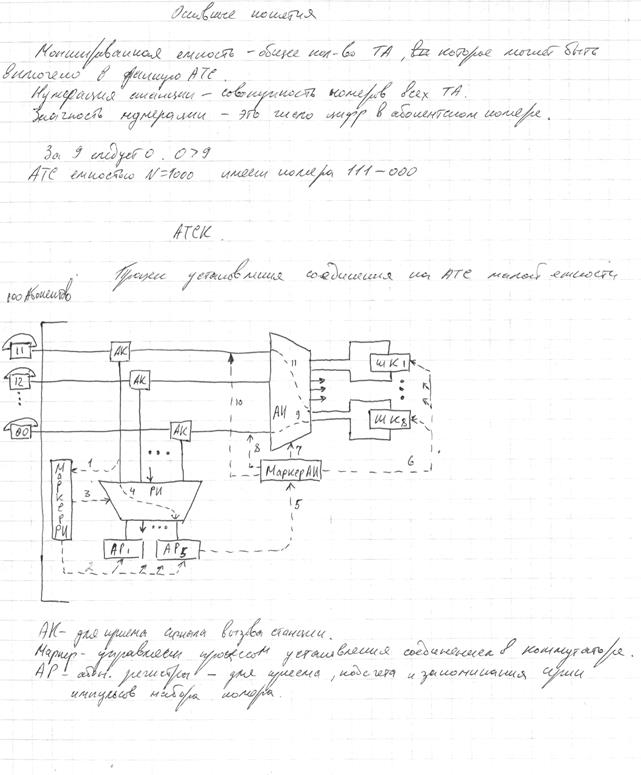 Основные понятия
Монтированная емкость – общее кол-во ТА, которое может быть
включено в данную АТС.
Нумерация станции – совокупность номеров всех ТА.
Значность нумерации – это число цифр в абонентском номере.
За 9 следует 0. 0>9
АТС емкостью N=1000 имеет номера 111–000
АТСК.
Процесс установления соединения на АТС малой емкости
100 Абонентов
11
АК
12
АК
00
АК
11
АИ
9
ШК1
ШК8
10
8
7
6
5
Маркер АИ
Маркер РИ
1
3
4
РИ
2
АР1
АР5
АК – для приема сигнала вызова станции.
Маркер – управляет процессом установления соединения в коммутаторе.
АР – абон. регистры – для приема, подсчета и запоминания серии
импульсов набора номера.